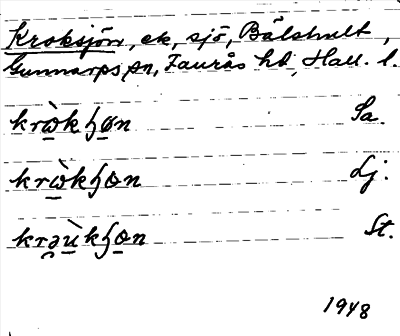 Kroksjön, ek, sjö, Bälshult,
Gunnarps sn, Faurås hd, Hall. l.
krὼkɧon Sa.
krὼkɧon Lj.
krəùkɧon St.
1948